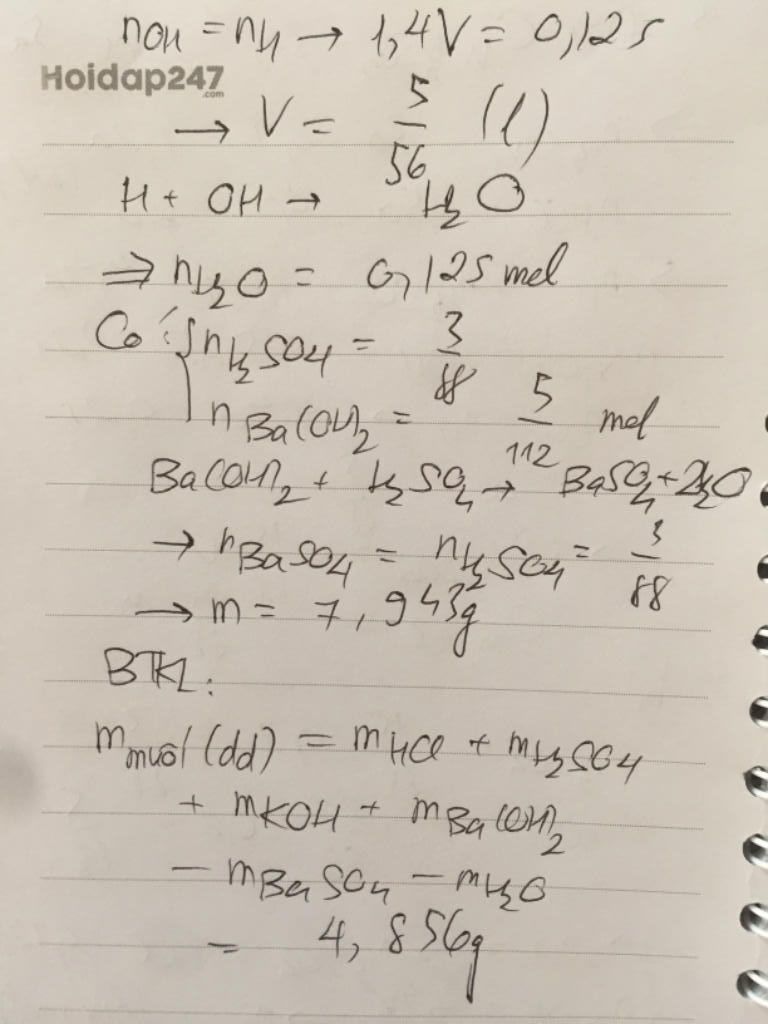 nOH = nH → 1,4V = 0,125
Hoidap247
.com
→ V = 5/56 (l)
H + OH → H2O
⇒ nH2O = 0,125 mol
Có: { nH2SO4 = 3/88
nBa(OH)2 = 5/112 mol
Ba(OH)2 + H2SO4 → BaSO4 + 2H2O
→ nBaSO4 = nH2SO4 = 3/88
→ m = 7,943g
BTKL:
mmuối (dd) = mHCl + mH2SO4
+ mKOH + mBa(OH)2
− mBaSO4 − mH2O
= 4,856g